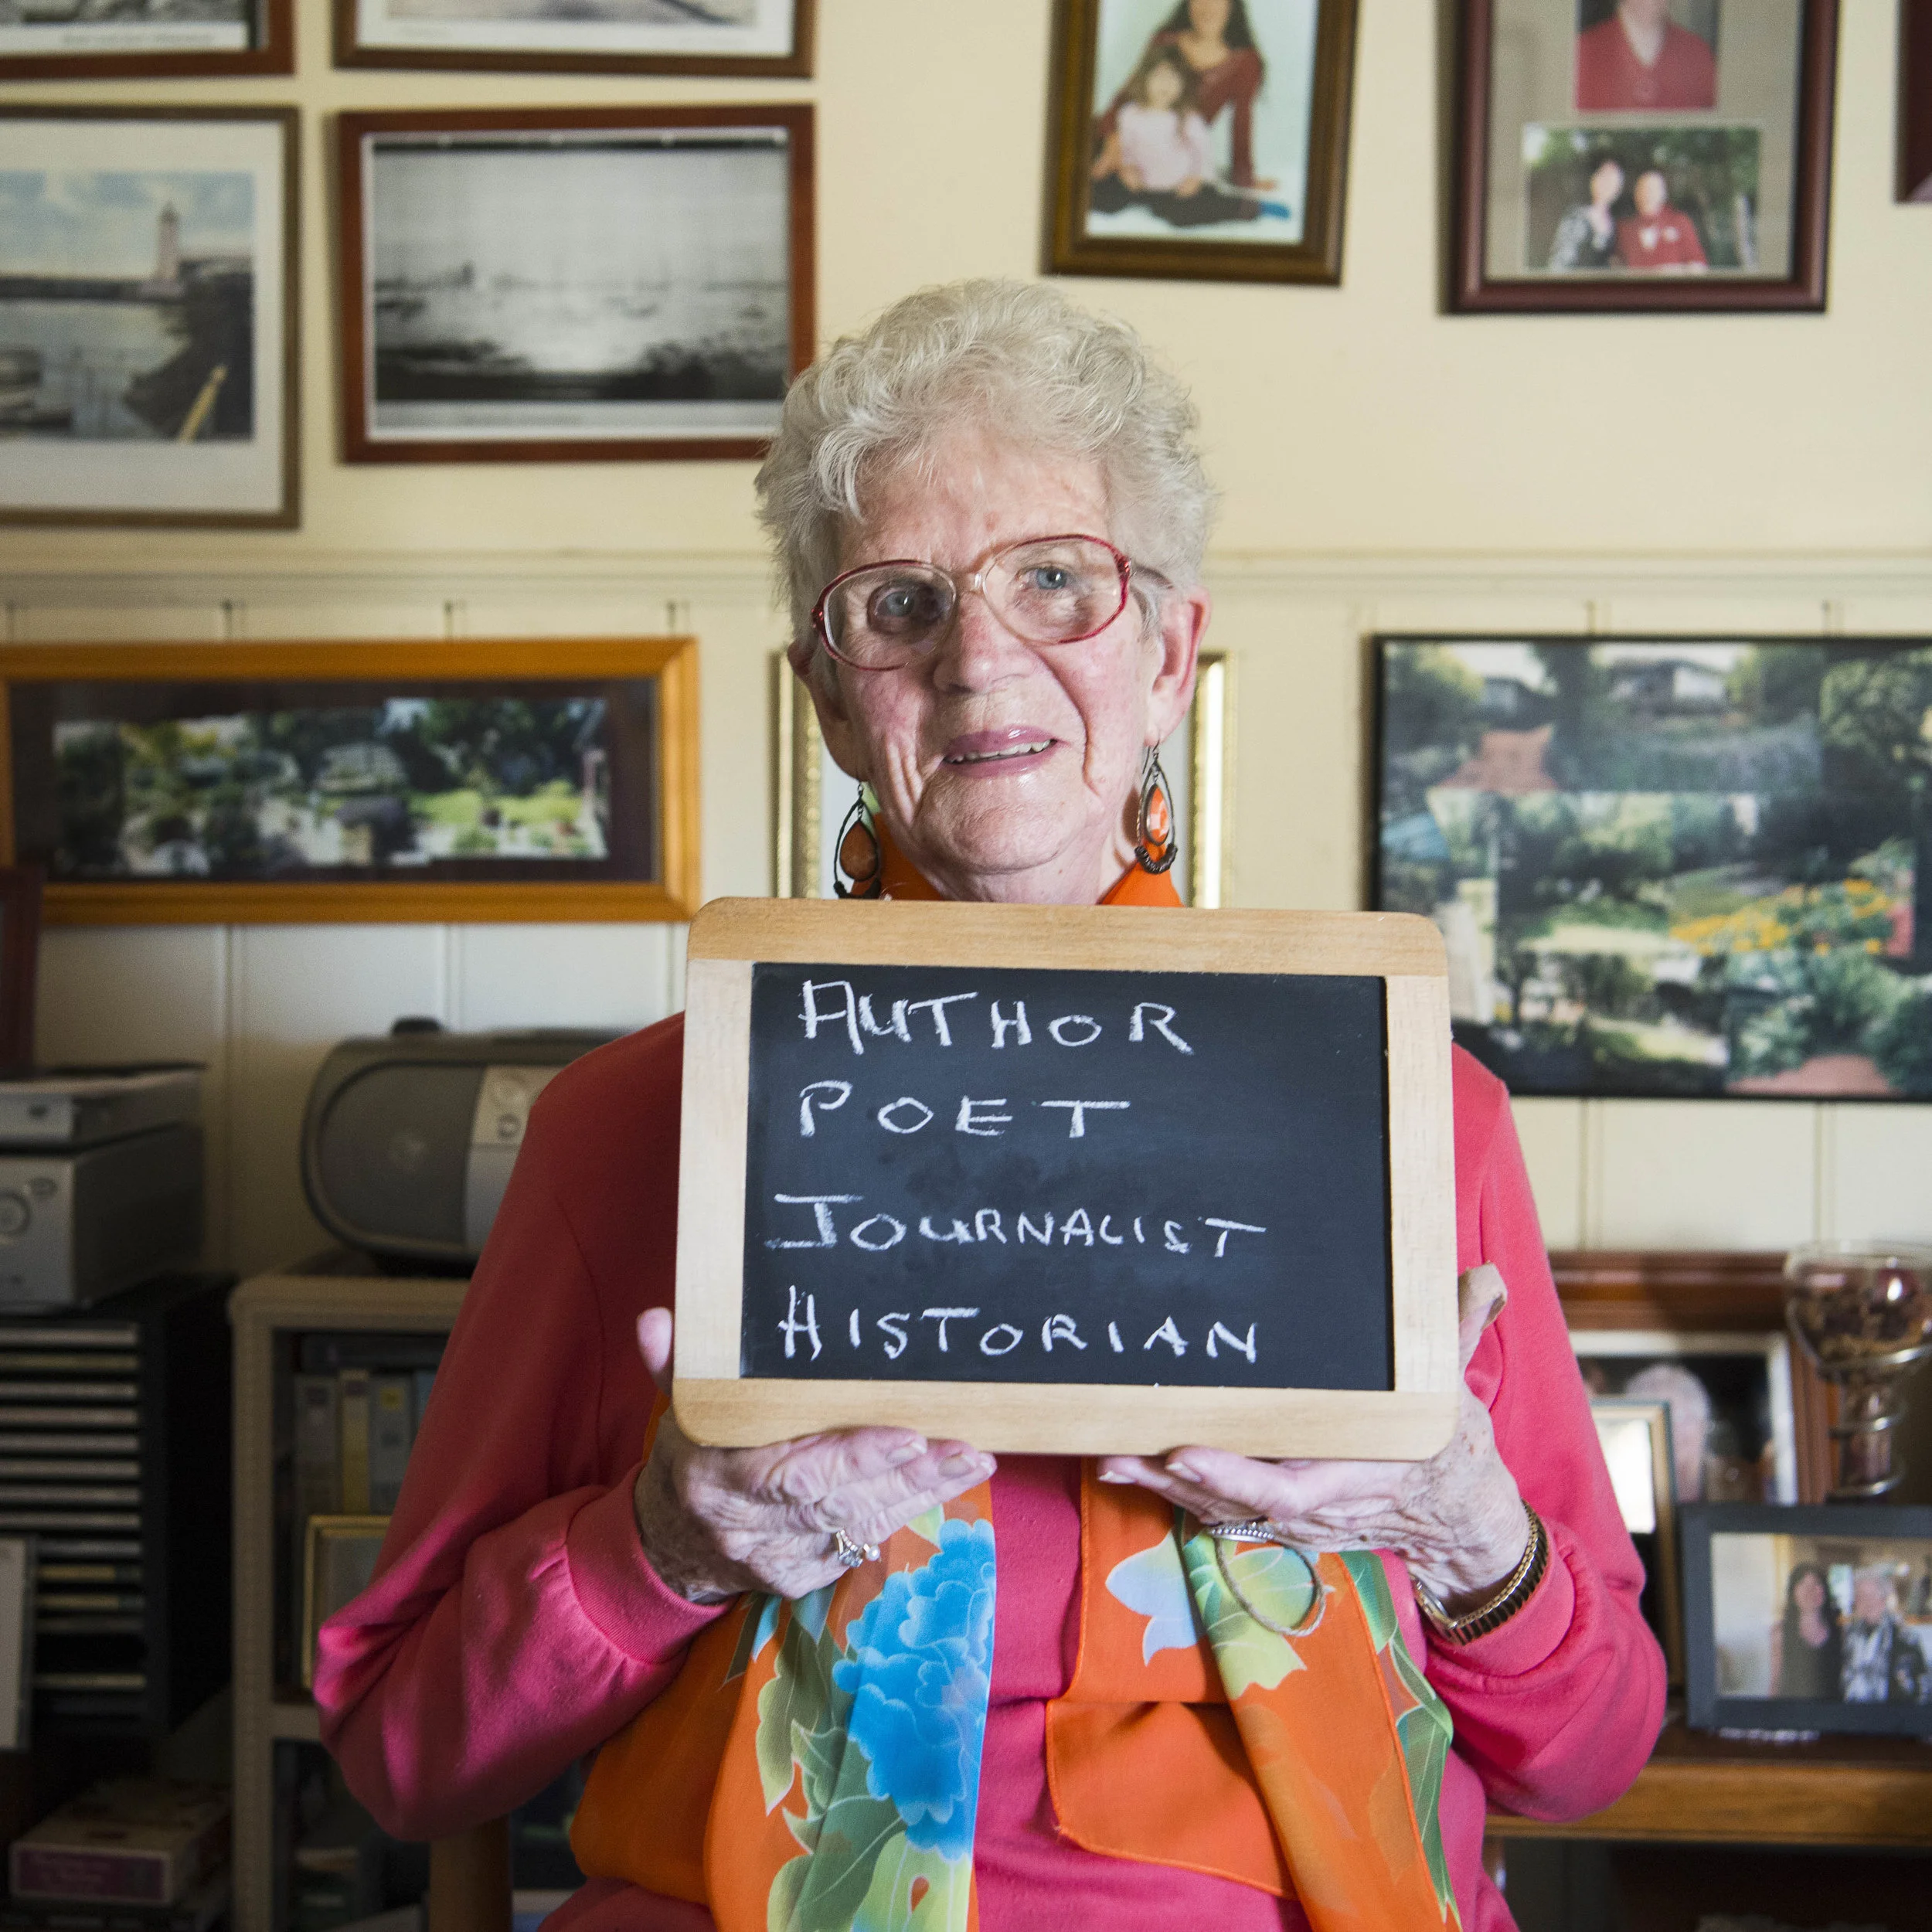 AUTHOR
POET
JOURNALIST
HISTORIAN